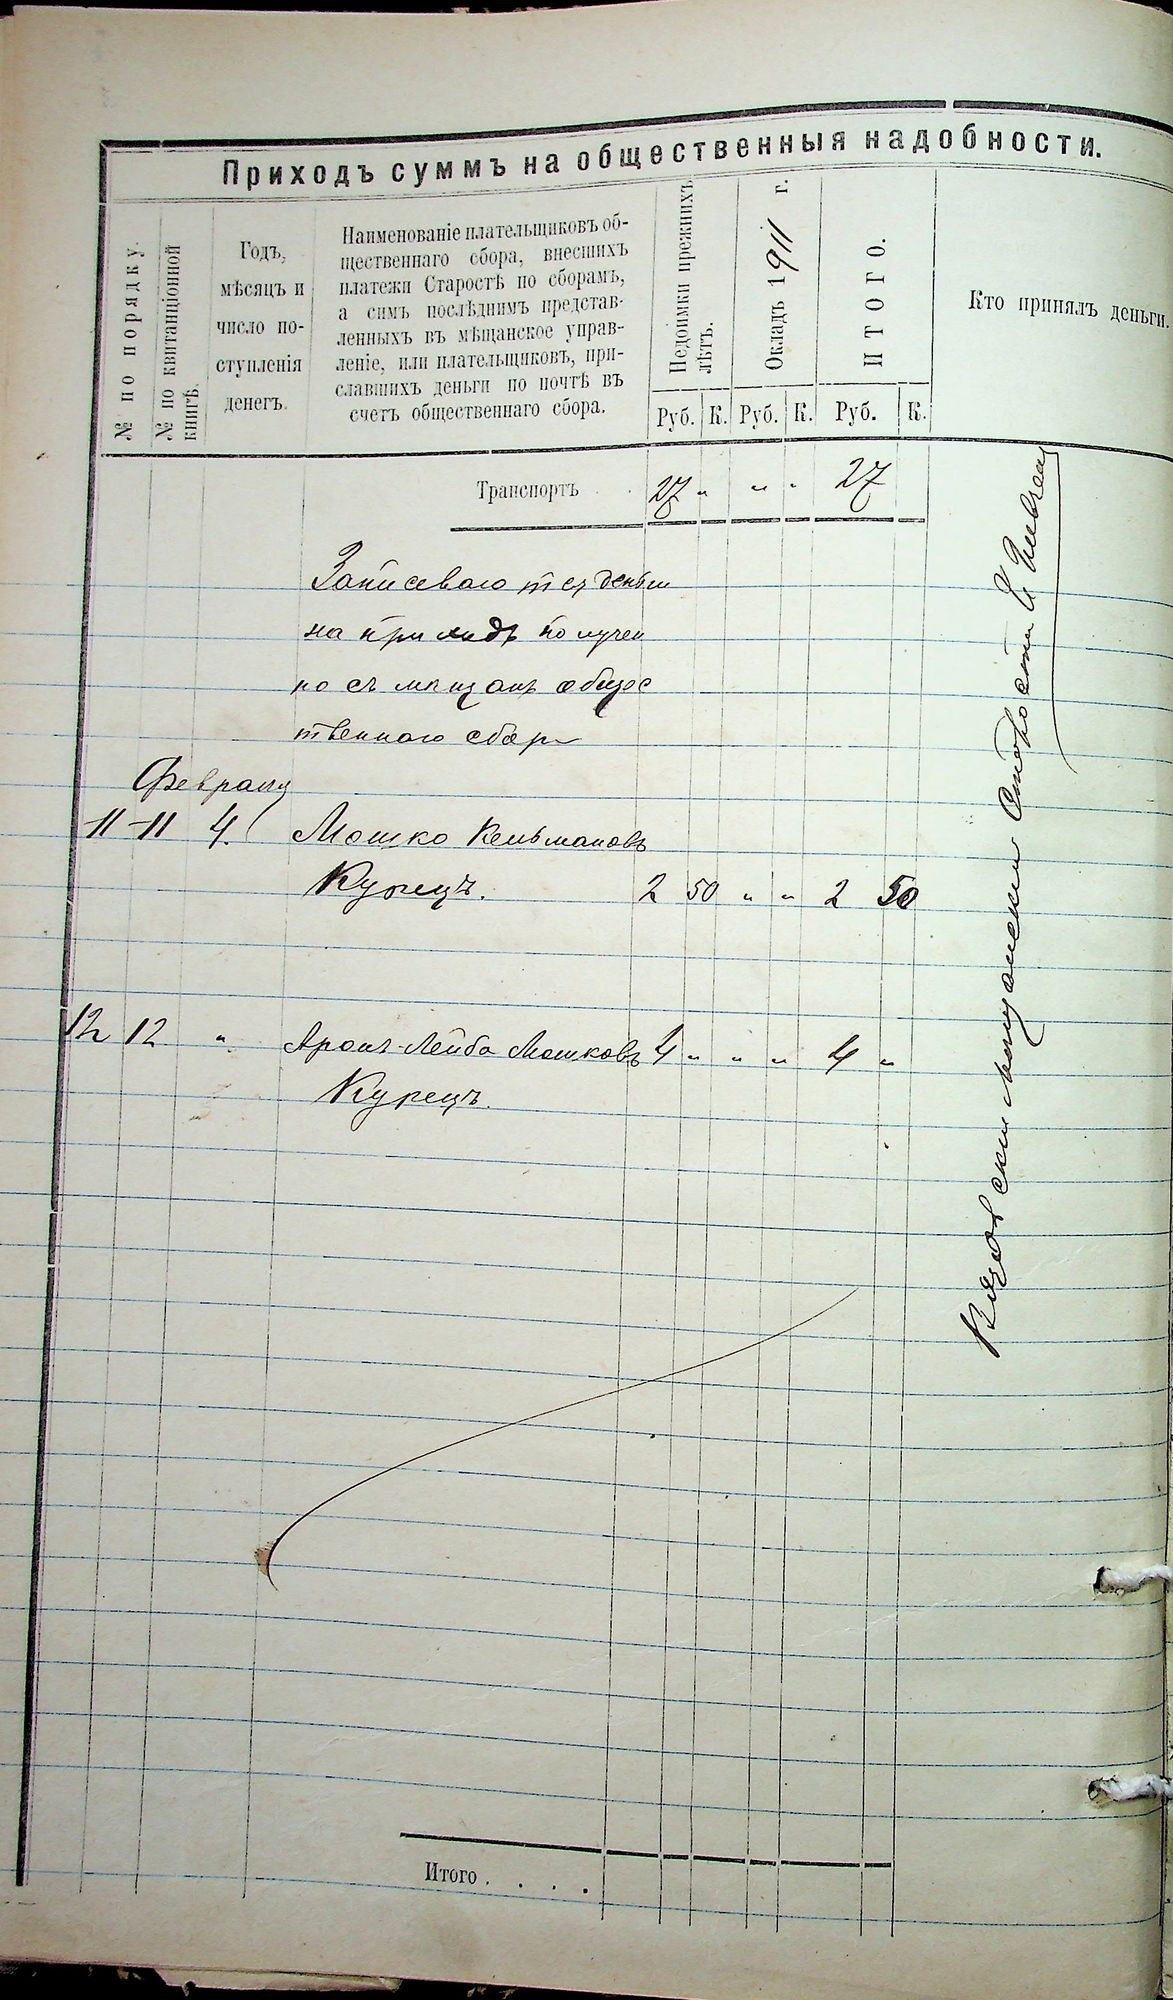 Приходъ суммъ на общественныя надобности.
№ по порядку.
№ по квитанціонной
книгѣ.
Годъ,
мѣсяцъ и
число по-
ступленія
денегъ.
Наименованіе плательщиковъ об-
щественнаго сбора, внесшихъ
платежи Старостѣ по сборамъ,
а симъ послѣднимъ представ-
ленныхъ въ мѣщанское управ-
леніе, или плательщиковъ, при-
славшихъ деньги по почтѣ въ
счетъ общественнаго сбора.
Недоимки прежнихъ
лѣтъ.
Окладъ 1911 г.
ИТОГО.
Кто принялъ деньги.
Руб. К. Руб. К. Руб. К.
Транспортъ . . 27 " " " 27
Записеваю деньги
на приходъ получен
но съ мещанъ общес
твеннаго сбора
Февраля
11 11 4. Мошко Кельмановъ
Курецъ. 2 50 " " 2 50
12 12 " Аронъ-Лейба Мошковъ 4 " " " 4 "
Курецъ.
мещански старости
Итого . . . .